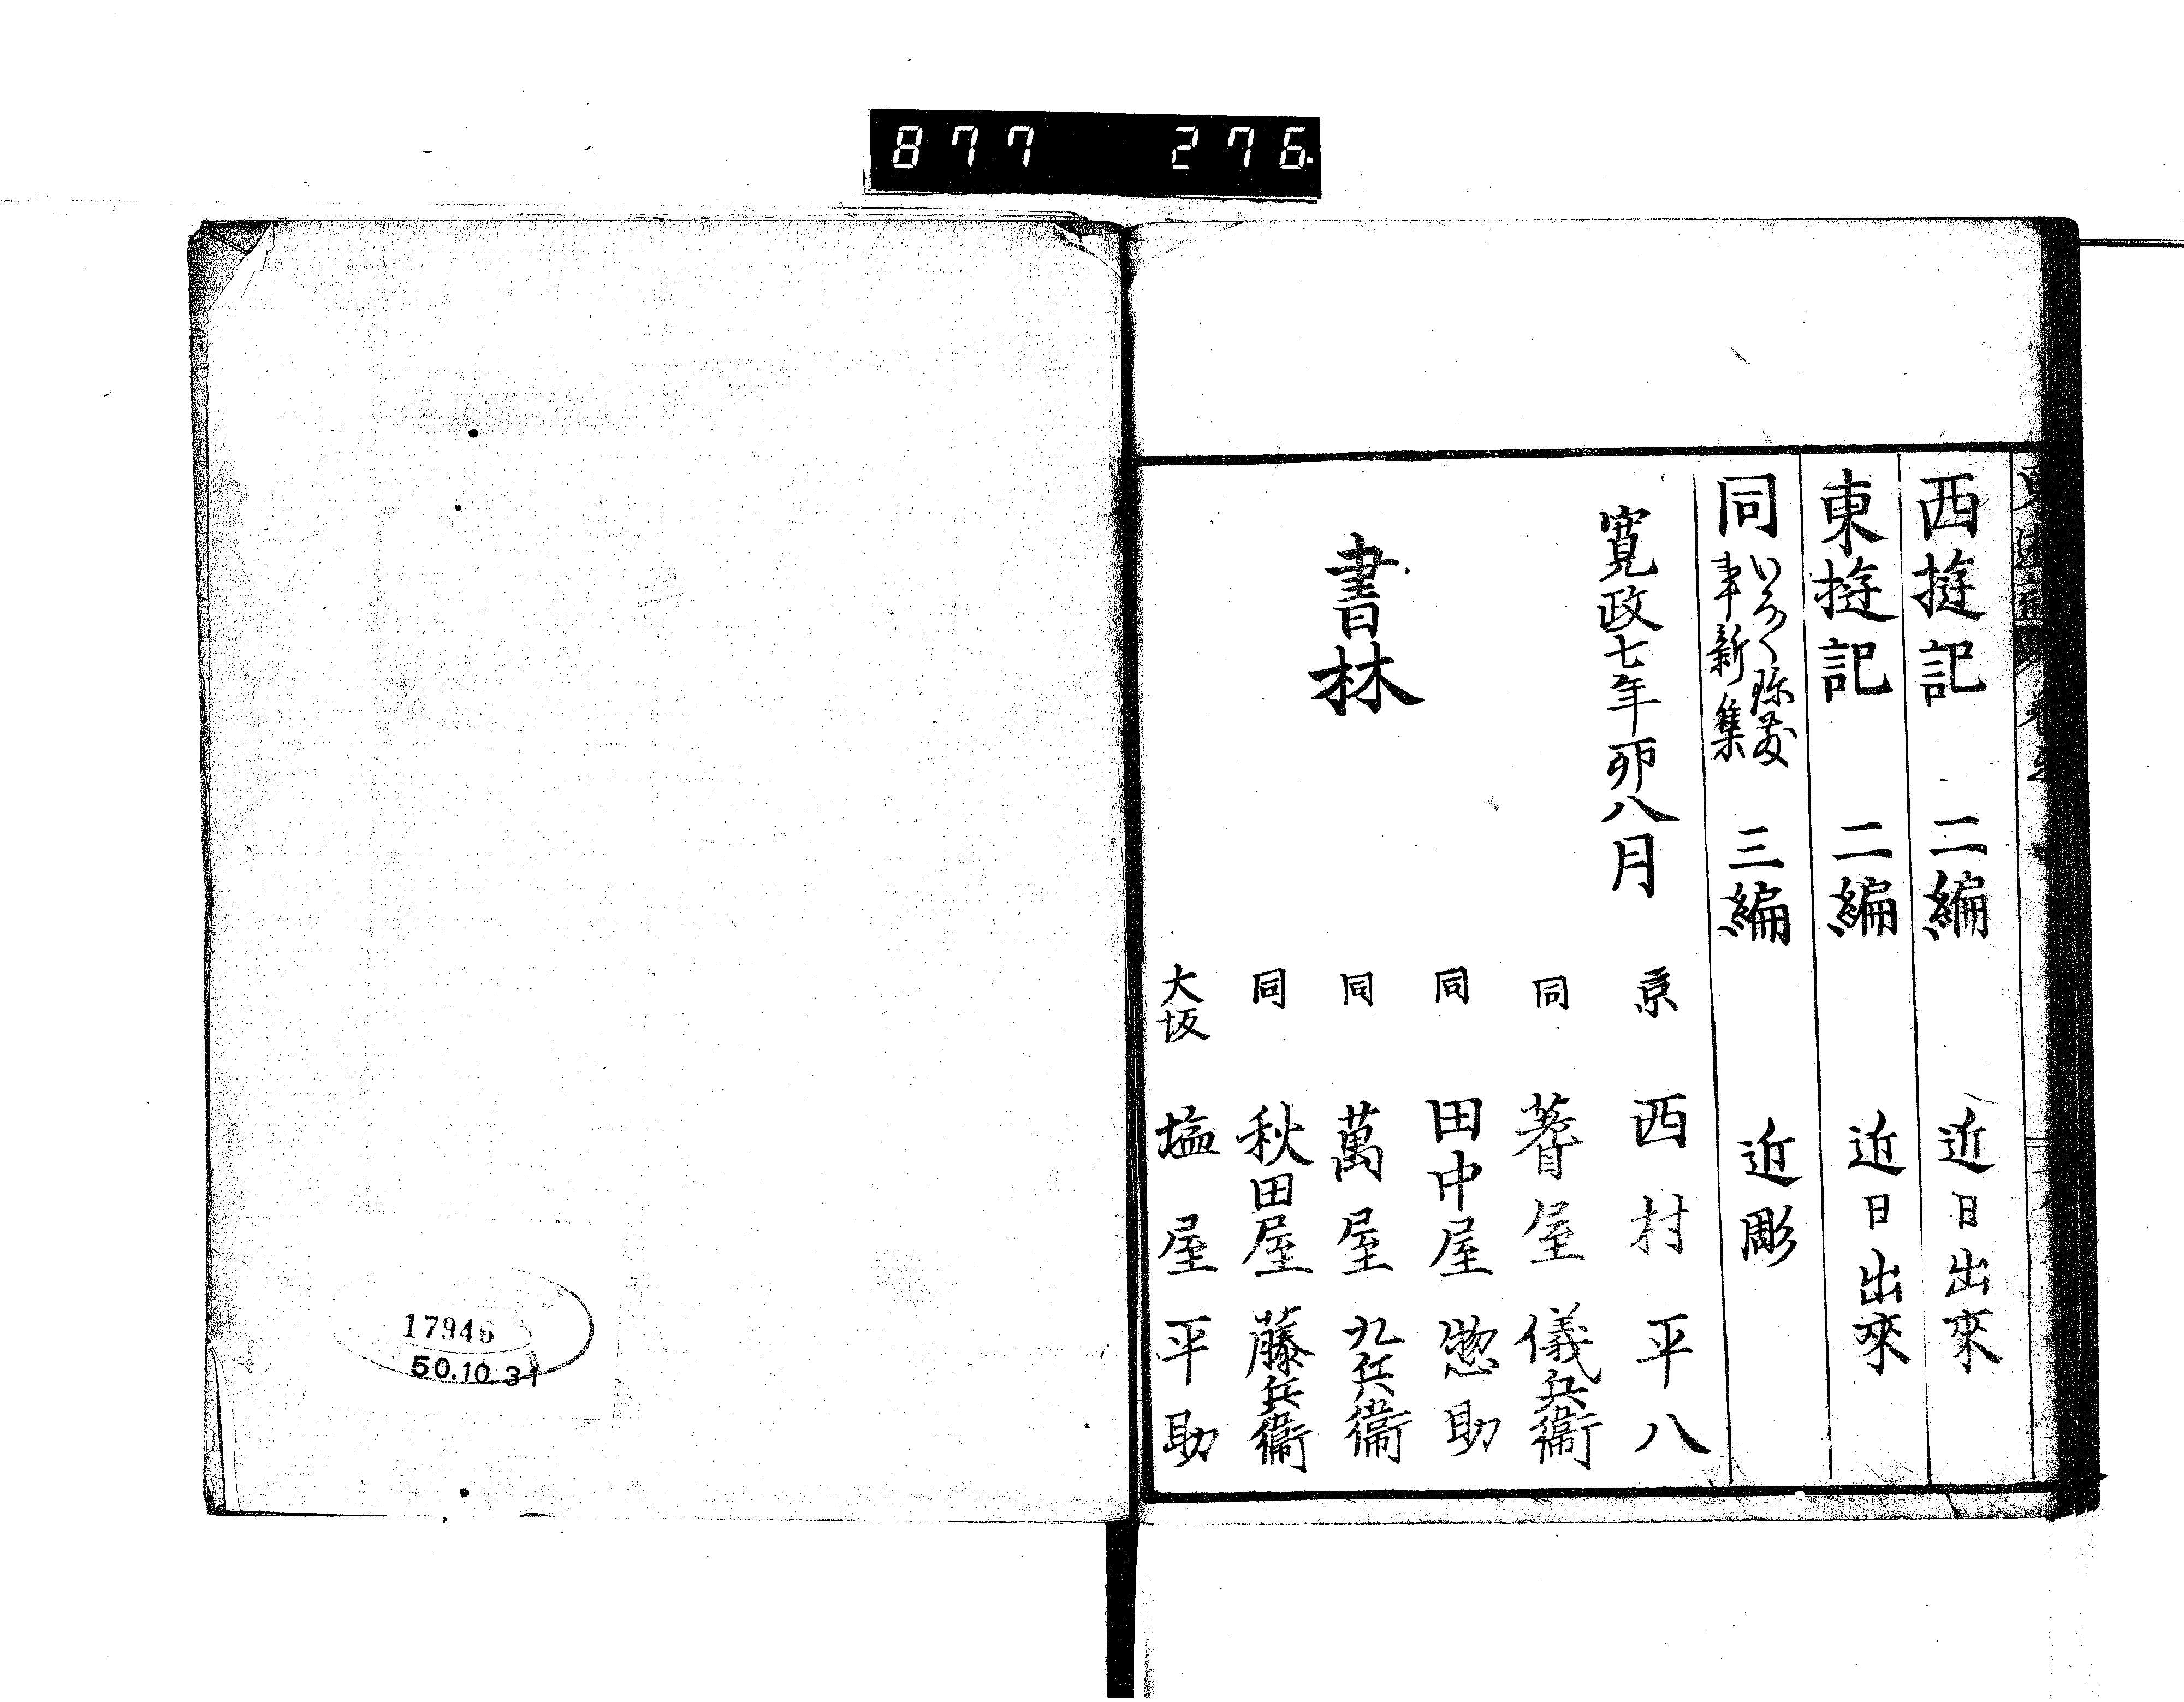 877 276
西遊記 二編 近日出來
東遊記 二編 近日出來
同 いろ〱珍敷事新集 三編 近彫
寛政七年卯八月
書林
京 西村平八
同 著屋儀兵衛
同 田中屋惣助
同 萬屋九兵衛
同 秋田屋藤兵衛
大坂 塩屋平助
17945
50.10.31